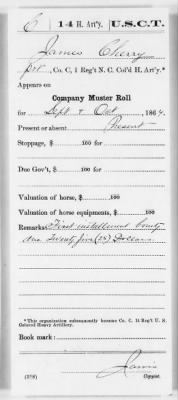 C | 14 H. Art'y. | U.S.C.T.
James Cherry
Pvt, Co. C, 1 Reg't N. C. Col'd H. Art'y.*
Appears on
Company Muster Roll
for Sept & Oct, 1864.
Present or absent Present
Stoppage, $ 100 for
Due Gov't, $ 100 for
Valuation of horse, $ 100
Valuation of horse equipments, $ 100
Remarks: First installment bounty
due Twenty five (25) Dollars.
*This organization subsequently became Co. C, 14 Reg't U. S.
Colored Heavy Artillery.
Book mark:
(358) Copyist.